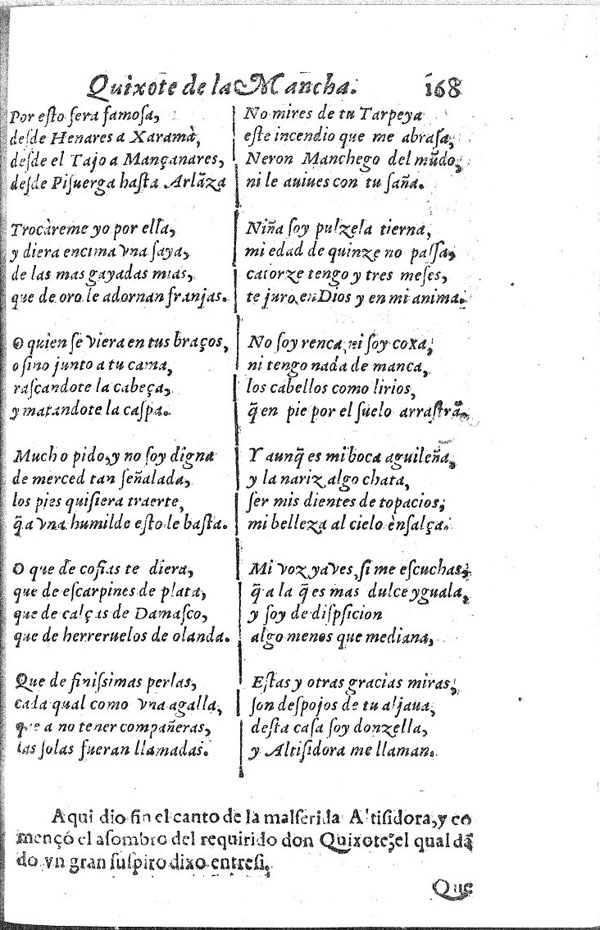 Quixote de la Mancha. 168
Por esto sera famosa,
desde Henares a Xarama,
desde el Tajo a Mançanares,
desde Pisuerga hasta Arlãza
Trocàreme yo por ella,
y diera encima vna saya,
de las mas gayadas mias,
que de oro le adornan franjas.
O quien se viera en tus braços,
o sino junto a tu cama,
rascandote la cabeça,
y matandote la caspa.
Mucho pido, y no soy digna
de merced tan señalada,
los pies quisiera traerte,
q̃ a vna humilde esto le basta.
O que de cofias te diera,
que de escarpines de plata,
que de calças de Damasco,
que de herreruelos de olanda.
Que de finissimas perlas,
cada qual como vna agalla,
que a no tener compañeras,
las solas fueran llamadas.
No mires de tu Tarpeya
este incendio que me abrasa,
Neron Manchego del mũdo,
ni le auiues con tu saña.
Niña soy pulzela tierna,
mi edad de quinze no passa,
catorze tengo y tres meses,
te juro en Dios y en mi anima.
No soy renca, ni soy coxa,
ni tengo nada de manca,
los cabellos como lirios,
q̃ en pie por el suelo arrastrã.
Y aunq̃ es mi boca aguileña,
y la nariz algo chata,
ser mis dientes de topacios,
mi belleza al cielo ensalça.
Mi voz ya ves, si me escuchas,
q̃ a la q̃ es mas dulce yguala,
y soy de dispsicion
algo menos que mediana,
Estas y otras gracias miras,
son despojos de tu aljaua,
desta casa soy donzella,
y Altisidora me llaman.
Aqui dio fin el canto de la malferida Altisidora, y co
mençò el asombro del requirido don Quixote, el qual dã
do vn gran suspiro dixo entresi.
Que